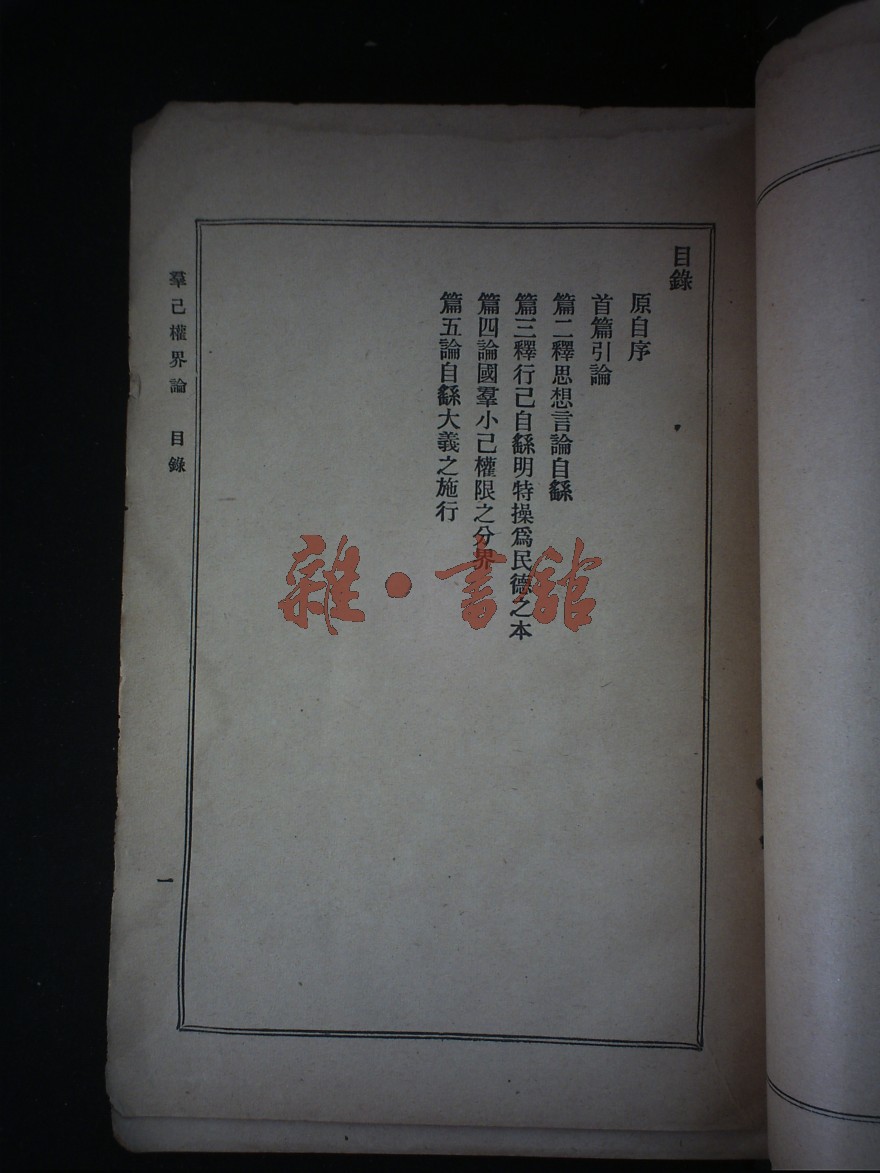 目錄
原自序
首篇引論
篇二釋思想言論自繇
篇三釋行己自繇明特操爲民德之本
篇四論國羣小己權限之分界
篇五論自繇大義之施行
羣己權界論 目錄
一
雜·書館